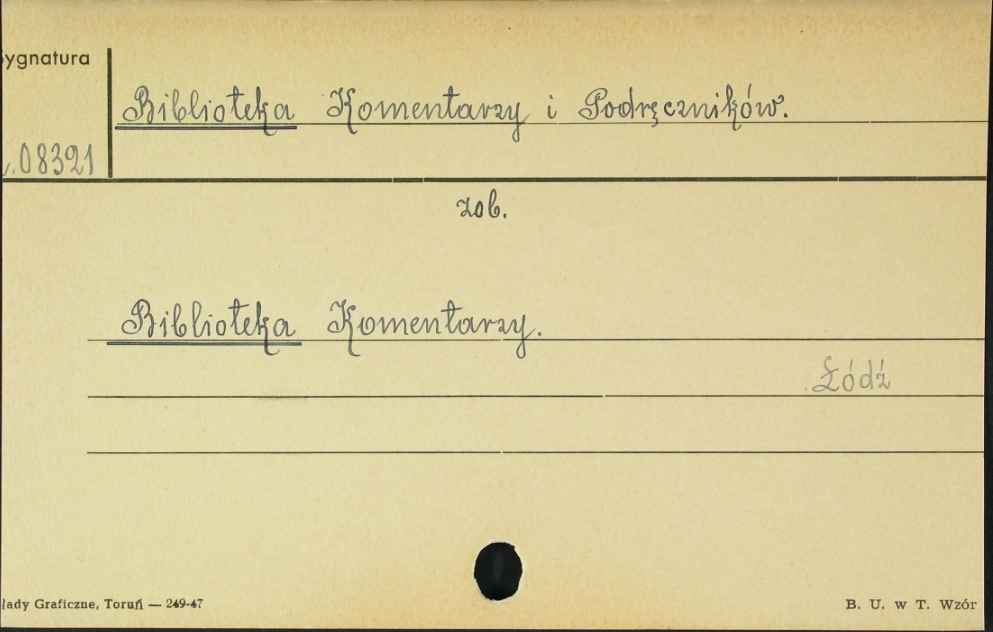 Sygnatura
Biblioteka Komentarzy i Podręczników.
08321
zob.
Biblioteka Komentarzy.
Łódź
łady Graficzne, Toruń — 249-47
B. U. w T. Wzór